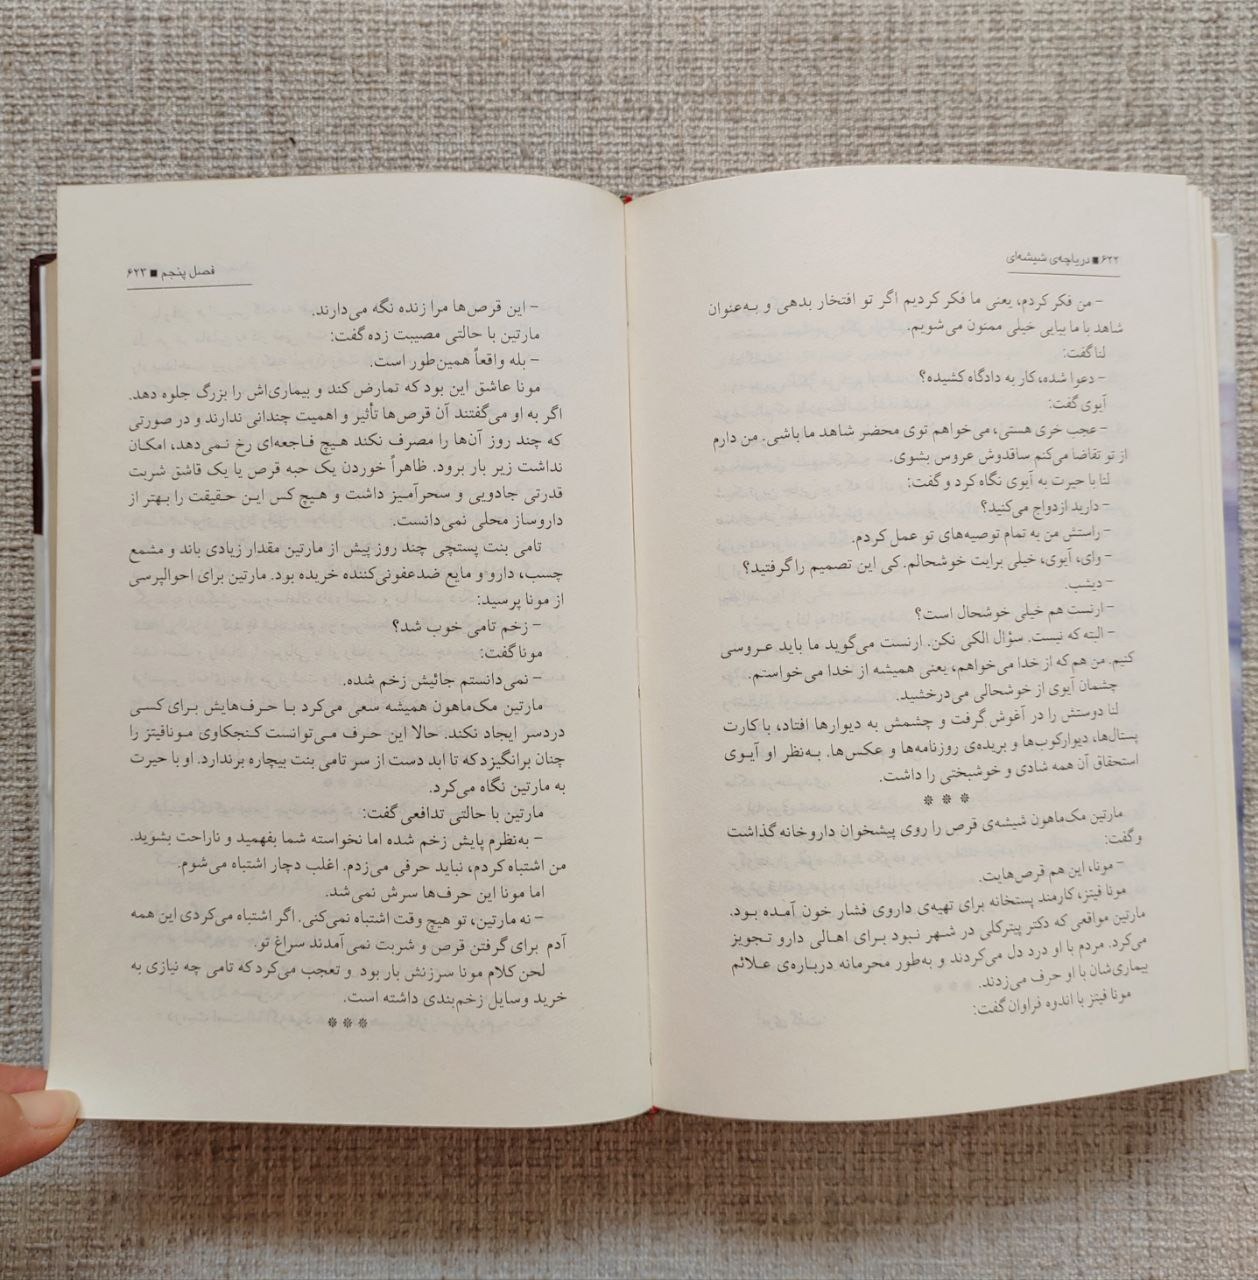 ۶۲۲ ■ دریاچه‌ی شیشه‌ای
– من فکر کردم، یعنی ما فکر کردیم اگر تو افتخار بدهی و به‌عنوان
شاهد با ما بیایی خیلی ممنون می‌شویم.
لنا گفت:
– دعوا شده، کار به دادگاه کشیده؟
آیوی گفت:
– عجب خری هستی، می‌خواهم توی محضر شاهد ما باشی. من دارم
از تو تقاضا می‌کنم ساقدوش عروس بشوی.
لنا با حیرت به آیوی نگاه کرد و گفت:
– دارید ازدواج می‌کنید؟
– راستش من به تمام توصیه‌های تو عمل کردم.
– وای، آیوی، خیلی برایت خوشحالم. کی این تصمیم را گرفتید؟
– دیشب.
– ارنست هم خیلی خوشحال است؟
– البته که نیست. سؤال الکی نکن. ارنست می‌گوید ما باید عروسی
کنیم. من هم که از خدا می‌خواهم، یعنی همیشه از خدا می‌خواستم.
چشمان آیوی از خوشحالی می‌درخشید.
لنا دوستش را در آغوش گرفت و چشمش به دیوارها افتاد، با کارت
پستال‌ها، دیوارکوب‌ها و بریده‌ی روزنامه‌ها و عکس‌ها. به‌نظر او آیوی
استحقاق آن همه شادی و خوشبختی را داشت.
* * *
مارتین مک‌ماهون شیشه‌ی قرص را روی پیشخوان داروخانه گذاشت
و گفت:
– مونا، این هم قرص‌هایت.
مونا فیتز، کارمند پستخانه برای تهیه‌ی داروی فشار خون آمده بود.
مارتین مواقعی که دکتر پیترکلی در شهر نبود برای اهالی دارو تجویز
می‌کرد. مردم با او درد دل می‌کردند و به‌طور محرمانه درباره‌ی علائم
بیماری‌شان با او حرف می‌زدند.
مونا فیتز با اندوه فراوان گفت:
فصل پنجم ■ ۶۲۳
– این قرص‌ها مرا زنده نگه می‌دارند.
مارتین با حالتی مصیبت زده گفت:
– بله واقعاً همین‌طور است.
مونا عاشق این بود که تمارض کند و بیماری‌اش را بزرگ جلوه دهد.
اگر به او می‌گفتند آن قرص‌ها تأثیر و اهمیت چندانی ندارند و در صورتی
که چند روز آن‌ها را مصرف نکند هیچ فاجعه‌ای رخ نمی‌دهد، امکان
نداشت زیر بار برود. ظاهراً خوردن یک حبه قرص یا یک قاشق شربت
قدرتی جادویی و سحرآمیز داشت و هیچ کس این حقیقت را بهتر از
داروساز محلی نمی‌دانست.
تامی بنت پستچی چند روز پیش از مارتین مقدار زیادی باند و مشمع
چسب، دارو و مایع ضدعفونی‌کننده خریده بود. مارتین برای احوالپرسی
از مونا پرسید:
– زخم تامی خوب شد؟
مونا گفت:
– نمی‌دانستم جائیش زخم شده.
مارتین مک‌ماهون همیشه سعی می‌کرد با حرف‌هایش برای کسی
دردسر ایجاد نکند. حالا این حرف می‌توانست کنجکاوی مونافیتز را
چنان برانگیزد که تا ابد دست از سر تامی بنت بیچاره برندارد. او با حیرت
به مارتین نگاه می‌کرد.
مارتین با حالتی تدافعی گفت:
– به‌نظرم پایش زخم شده اما نخواسته شما بفهمید و ناراحت بشوید.
من اشتباه کردم، نباید حرفی می‌زدم. اغلب دچار اشتباه می‌شوم.
اما مونا این حرف‌ها سرش نمی‌شد.
– نه مارتین، تو هیچ وقت اشتباه نمی‌کنی. اگر اشتباه می‌کردی این همه
آدم برای گرفتن قرص و شربت نمی‌آمدند سراغ تو.
لحن کلام مونا سرزنش بار بود و تعجب می‌کرد که تامی چه نیازی به
خرید وسایل زخم‌بندی داشته است.
* * *